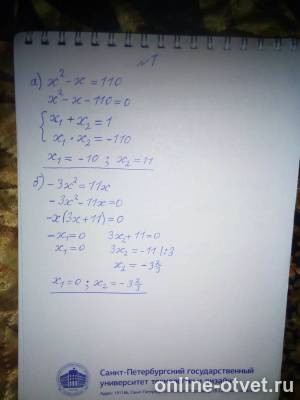 №1
а) x² - x = 110
x² - x - 110 = 0
{ x₁ + x₂ = 1
x₁ · x₂ = -110
x₁ = -10 ; x₂ = 11
б) -3x² = 11x
-3x² - 11x = 0
-x(3x + 11) = 0
-x₁ = 0 3x₂ + 11 = 0
x₁ = 0 3x₂ = -11 |:3
x₂ = -3⅔
x₁ = 0 ; x₂ = -3⅔
Санкт-Петербургский государственный
университет
online-otvet.ru